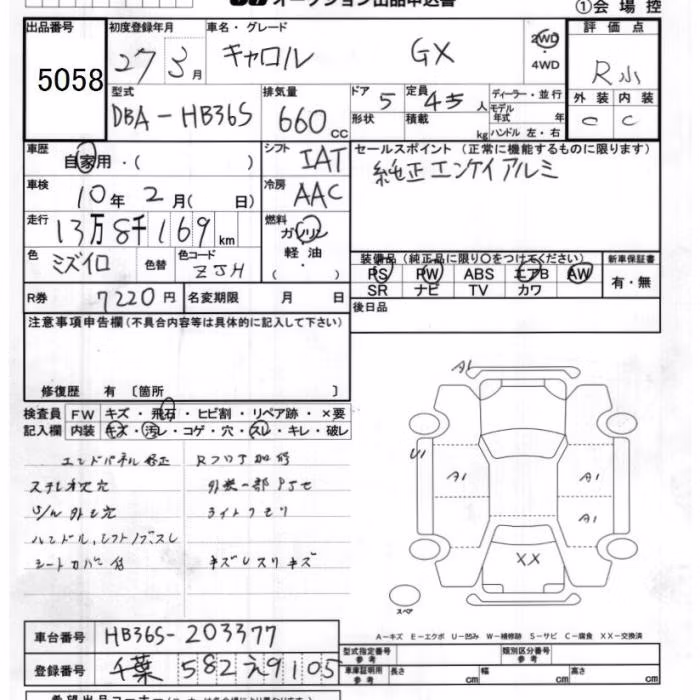 オークション出品申込書
①会場控
出品番号 初度登録年月 車名・グレード 評価点
5058 27 3月 キャロル GX 2WD ・ 4WD R小
外装 内装
C C
型式 排気量 ドア 定員 ディーラー・並行
DBA-HB36S 660cc 5 4 人 モデル年式 年
形状 積載 kg ハンドル 左・右
車歴 自家用・( ) シフト IAT セールスポイント (正常に機能するものに限ります)
純正エンケイアルミ
車検 10年 2月( 日) 冷房 AAC
走行 13万8千169km 燃料 ガソリン・軽油・( )
色 ミズイロ 色替 色コード ZJH
装備品 (純正品に限り○をつけてください) 新車保証書
PS PW ABS エアB AW 有・無
SR ナビ TV カワ
R券 7220円 名変期限 月 日 後日品
注意事項申告欄 (不具合内容等は具体的に記入して下さい)
修復歴 有 〔箇所 〕
検査員記入欄 FW キズ・飛石・ヒビ割・リペア跡・×要
内装 キズ・汚レ・コゲ・穴・スレ・キレ・破レ
エンドパネル修正 Rフロア加修
外装一部
ハンドル、シフトノブスレ
シートカバー付
A1
U1
A1 A1
A1
XX
スペア
A-キズ E-エクボ U-凹み W-補修跡 S-サビ C-腐食 XX-交換済
車台番号 HB36S-203377
登録番号 千葉 582 え 9105
型式指定番号 参考 類別区分番号 参考
車庫証明用 参考 長さ cm 幅 cm 高さ cm